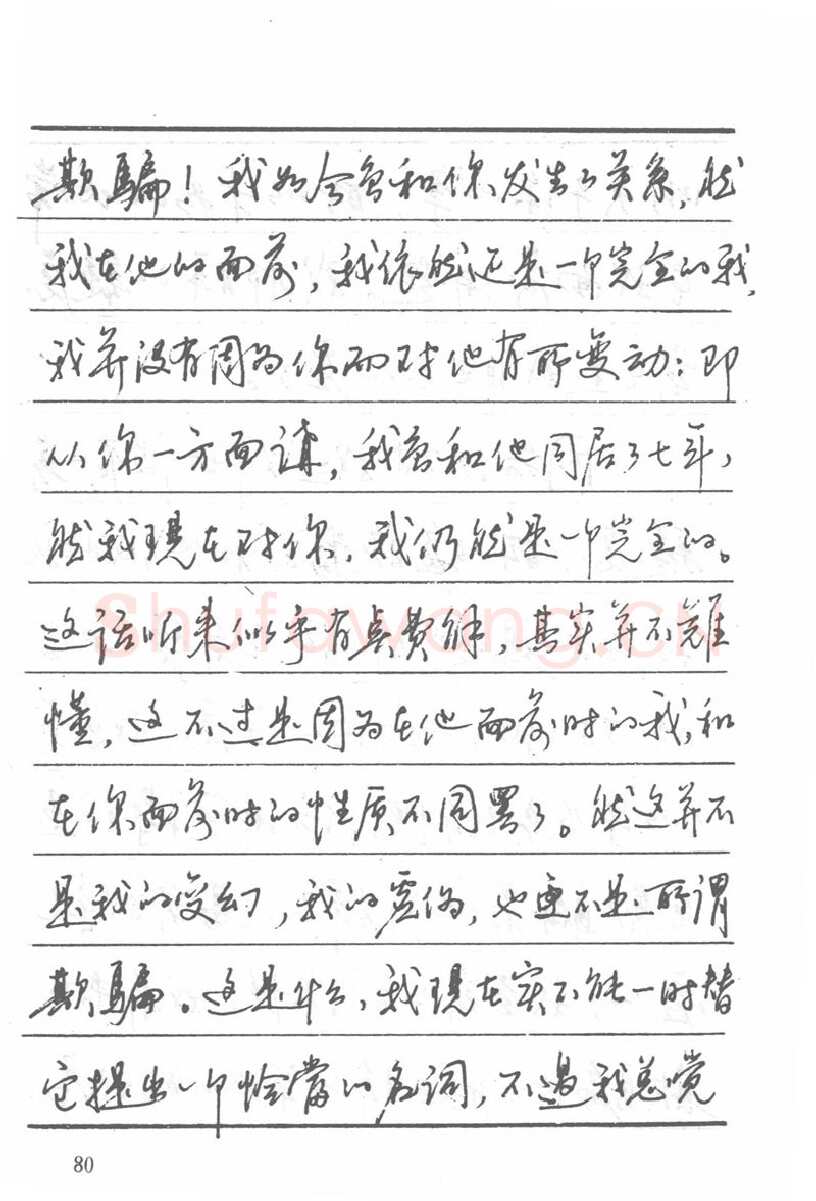 欺骗！我如今曾和你发生了关系，然
我在他的面前，我依然还是一个完全的我，
我并没有因为你而对他有所变动；即
从你一方面讲，我曾和他同居了七年，
然我现在对你，我仍然是一个完全的。
这话听来似乎有点费解，其实并不难
懂，这不过是因为在他面前时的我，和
在你面前时的性质不同罢了。然这并不
是我的变幻，我的虚伪，也更不是所谓
欺骗。这是什么，我现在实不能一时替
它提出一个恰当的名词，不过我总觉
80
Shufawang.CN